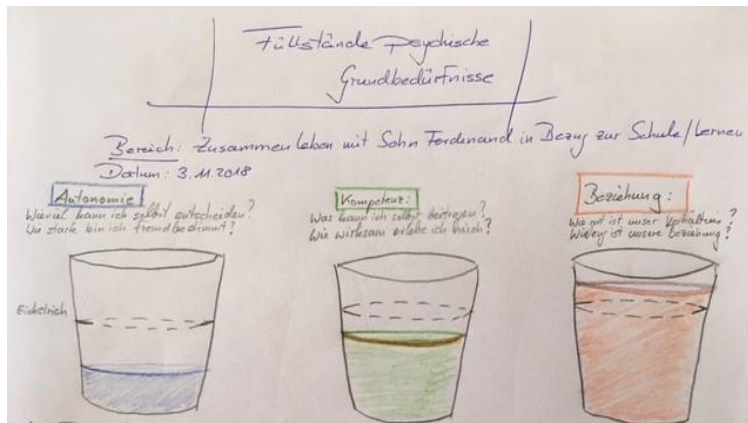 Füllstände psychische
Grundbedürfnisse
Bereich: Zusammenleben mit Sohn Ferdinand in Bezug zur Schule/Lernen
Datum: 3.11.2018
Autonomie
Wieviel kann ich selbst entscheiden?
Wie stark bin ich fremdbestimmt?
Kompetenz:
Was kann ich selbst beitragen?
Wie wirksam erlebe ich mich?
Beziehung:
Wie gut ist unser Verhältnis?
Wie eng ist unsere Beziehung?
Eichstrich